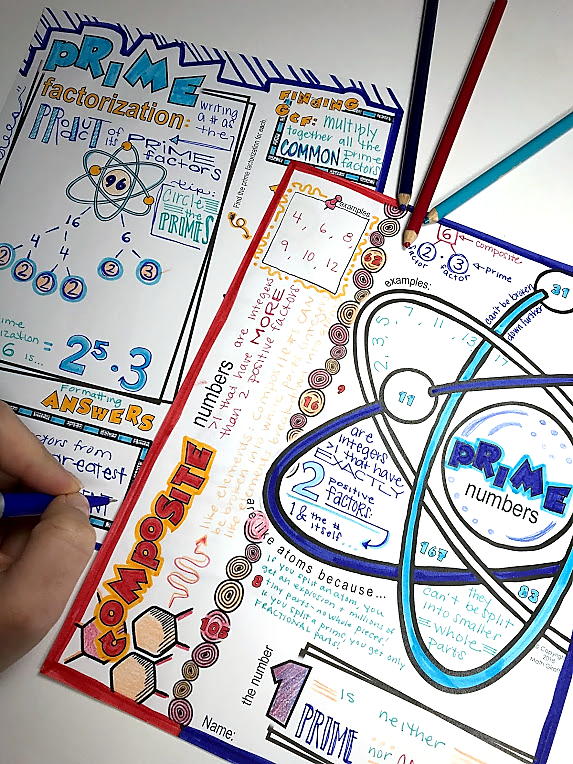 PRIME
factorization:
writing
a # as
the↓
PRODUCT of its PRIME factors
96
16
6
4
4
2
2
2
2
2
3
tip:
circle
the
PRIMES
is... = 2⁵·3
Find the prime factorization for each.
FINDING
GCF: multiply
together all the
COMMON prime
factors
Formatting
ANSWERS
factors from
greatest
examples
4, 6, 8,
9, 10, 12
COMPOSITE numbers
are integers
>1 that have MORE
than 2 positive factors
62
16
9
8
105
6
composite
2 · 3
prime
factor
factor
examples:
2, 3, 5, 7, 11, 13, 17
can't be broken
down further
31
11
are
integers
>1 that have
EXACTLY
2 positive
factors:
1 & the #
itself
PRIME
numbers
167
83
they
can't be split
into smaller
WHOLE
parts
atoms because...
if you split an atom, you
get an explosion & millions of
tiny parts - no whole pieces!
if you split a prime, you get only
FRACTIONAL parts!
the number
1
is neither
PRIME nor
Name:
© Copyright